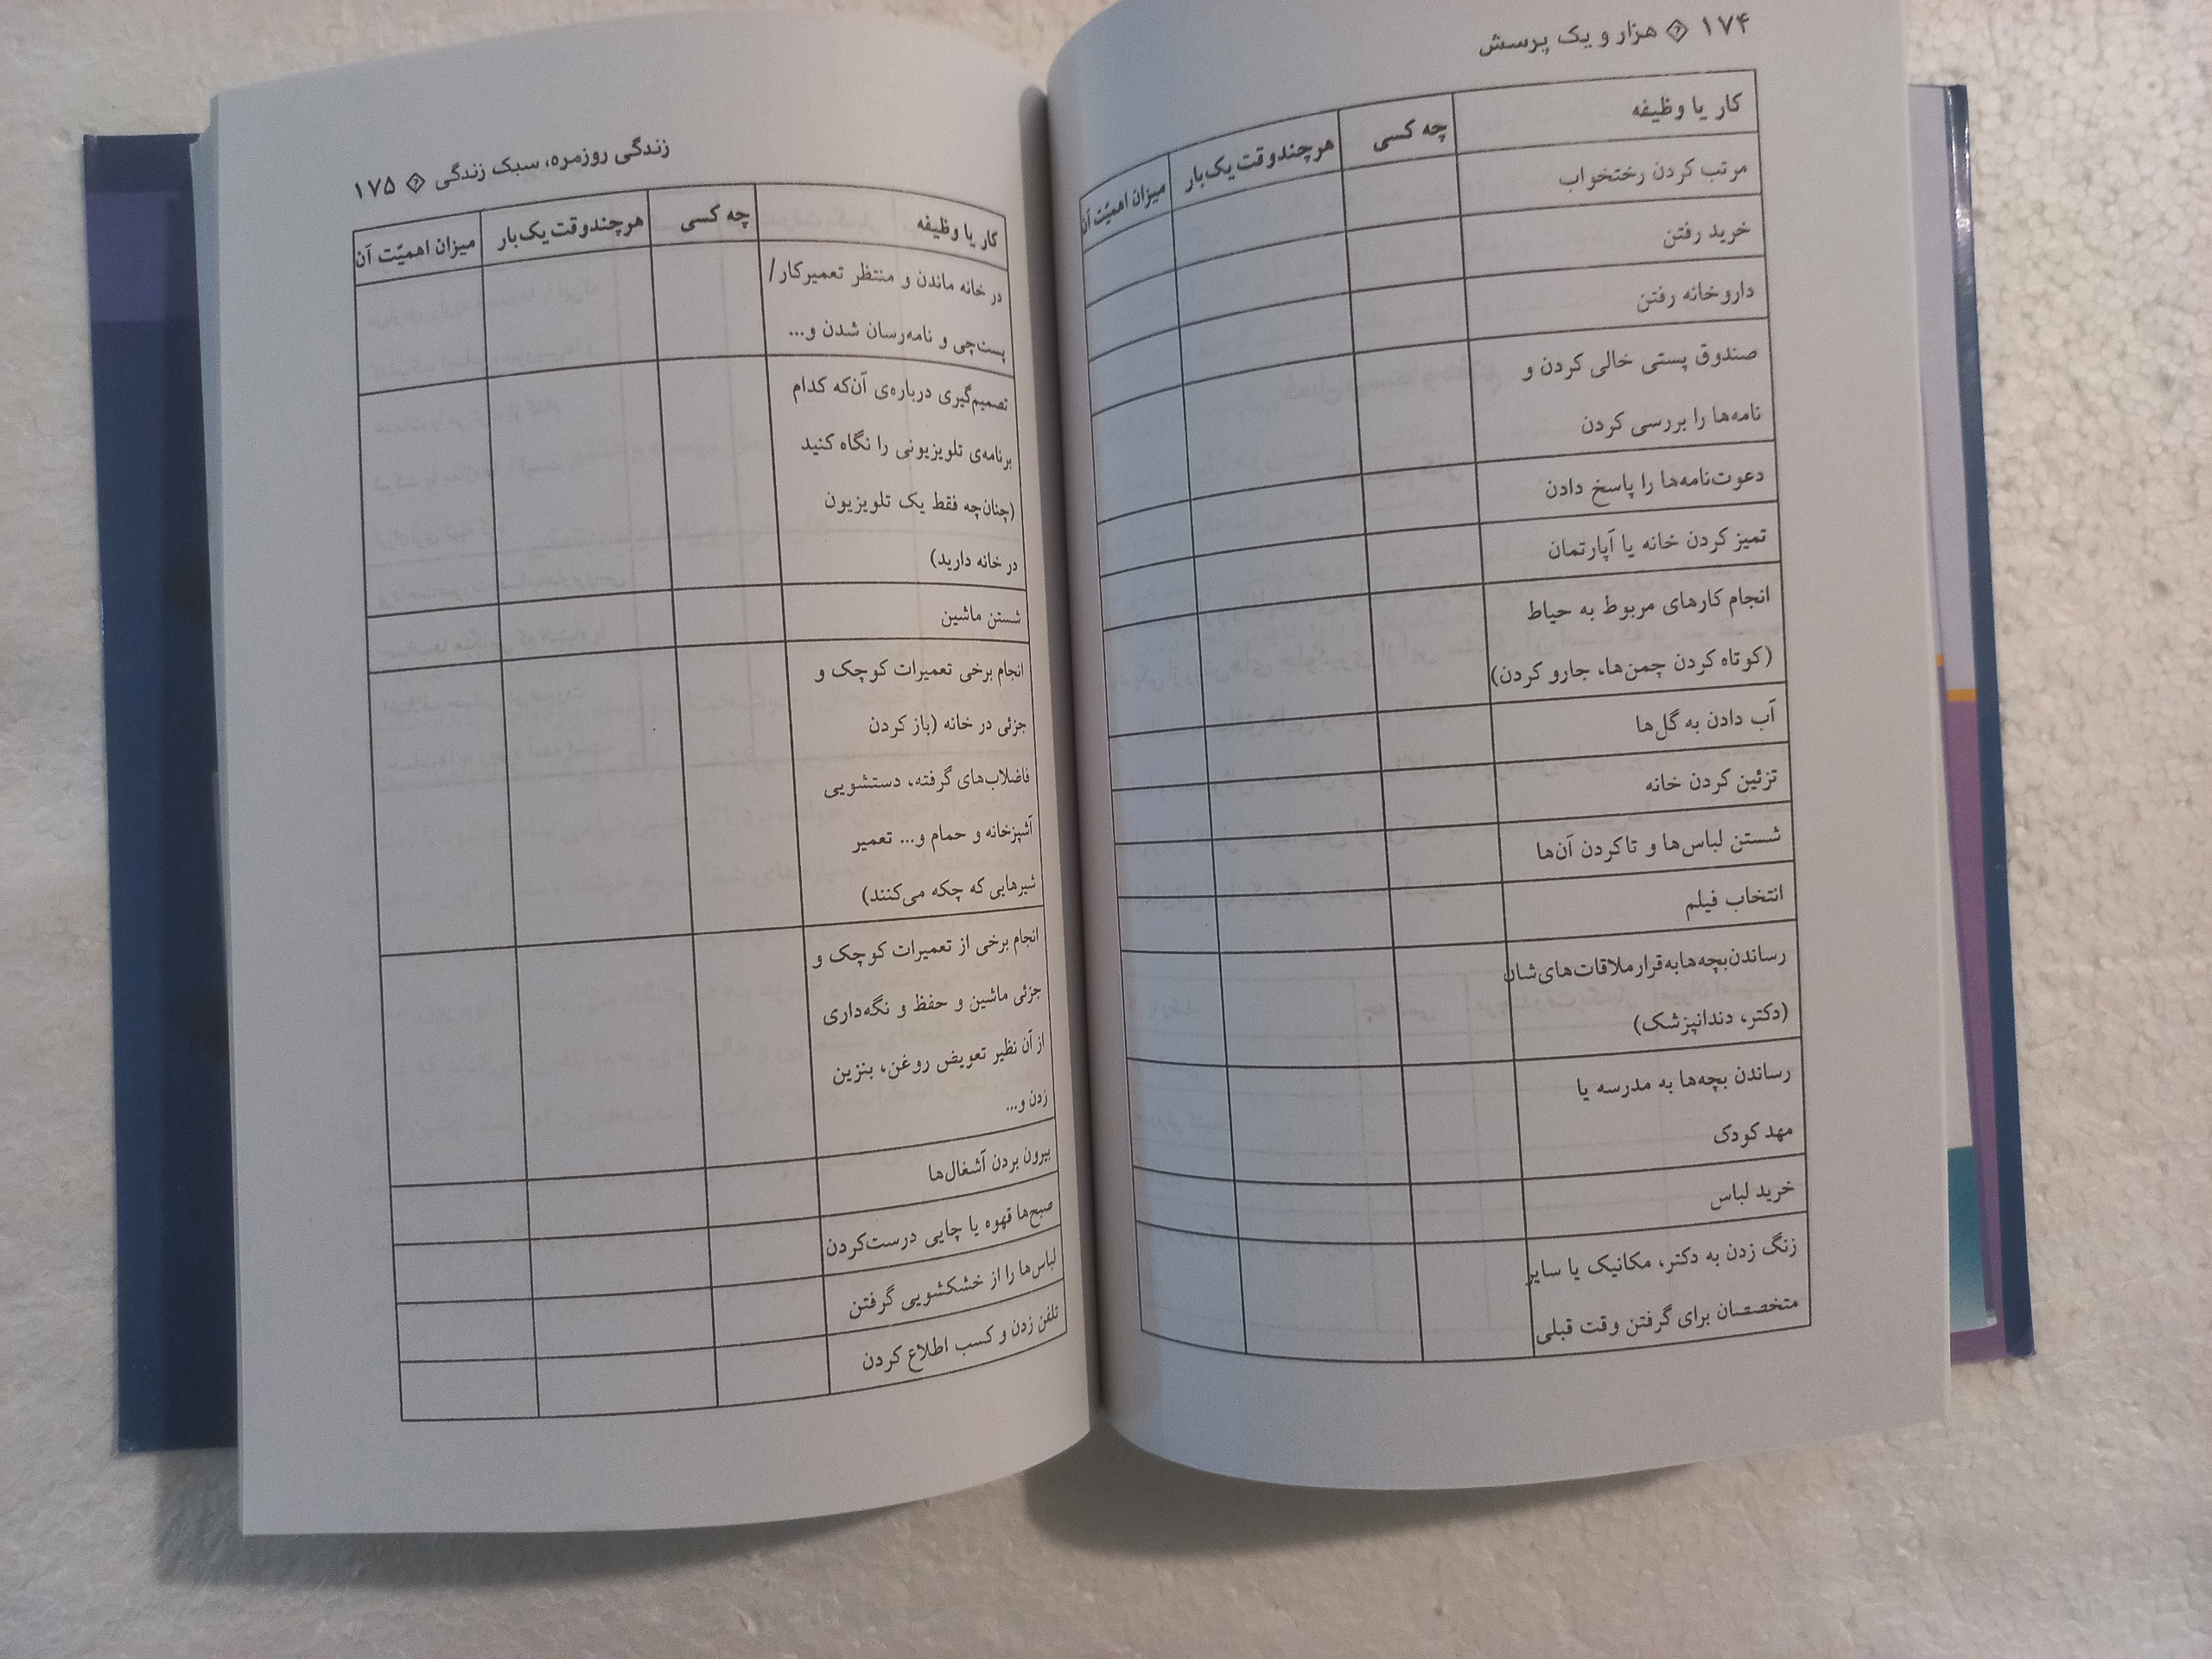 ۱۷۴ هزار و یک پرسش
کار یا وظیفه چه کسی هرچندوقت یک‌بار میزان اهمیّت آن
مرتب کردن رختخواب
خرید رفتن
داروخانه رفتن
صندوق پستی خالی کردن و
نامه‌ها را بررسی کردن
دعوت‌نامه‌ها را پاسخ دادن
تمیز کردن خانه یا آپارتمان
انجام کارهای مربوط به حیاط
(کوتاه کردن چمن‌ها، جارو کردن)
آب دادن به گل‌ها
تزئین کردن خانه
شستن لباس‌ها و تاکردن آن‌ها
انتخاب فیلم
رساندن‌بچه‌هابه‌قرارملاقات‌های‌شان
(دکتر، دندانپزشک)
رساندن بچه‌ها به مدرسه یا
مهد کودک
خرید لباس
زنگ زدن به دکتر، مکانیک یا سایر
متخصصان برای گرفتن وقت قبلی
زندگی روزمره، سبک زندگی ۱۷۵
کار یا وظیفه چه کسی هرچندوقت یک‌بار میزان اهمیّت آن
در خانه ماندن و منتظر تعمیرکار/
پست‌چی و نامه‌رسان شدن و...
تصمیم‌گیری درباره‌ی آن‌که کدام
برنامه‌ی تلویزیونی را نگاه کنید
(چنان‌چه فقط یک تلویزیون
در خانه دارید)
شستن ماشین
انجام برخی تعمیرات کوچک و
جزئی در خانه (باز کردن
فاضلاب‌های گرفته، دستشویی
آشپزخانه و حمام و... تعمیر
شیرهایی که چکه می‌کنند)
انجام برخی از تعمیرات کوچک و
جزئی ماشین و حفظ و نگه‌داری
از آن نظیر تعویض روغن، بنزین
زدن و...
بیرون بردن آشغال‌ها
صبح‌ها قهوه یا چایی درست‌کردن
لباس‌ها را از خشکشویی گرفتن
تلفن زدن و کسب اطلاع کردن